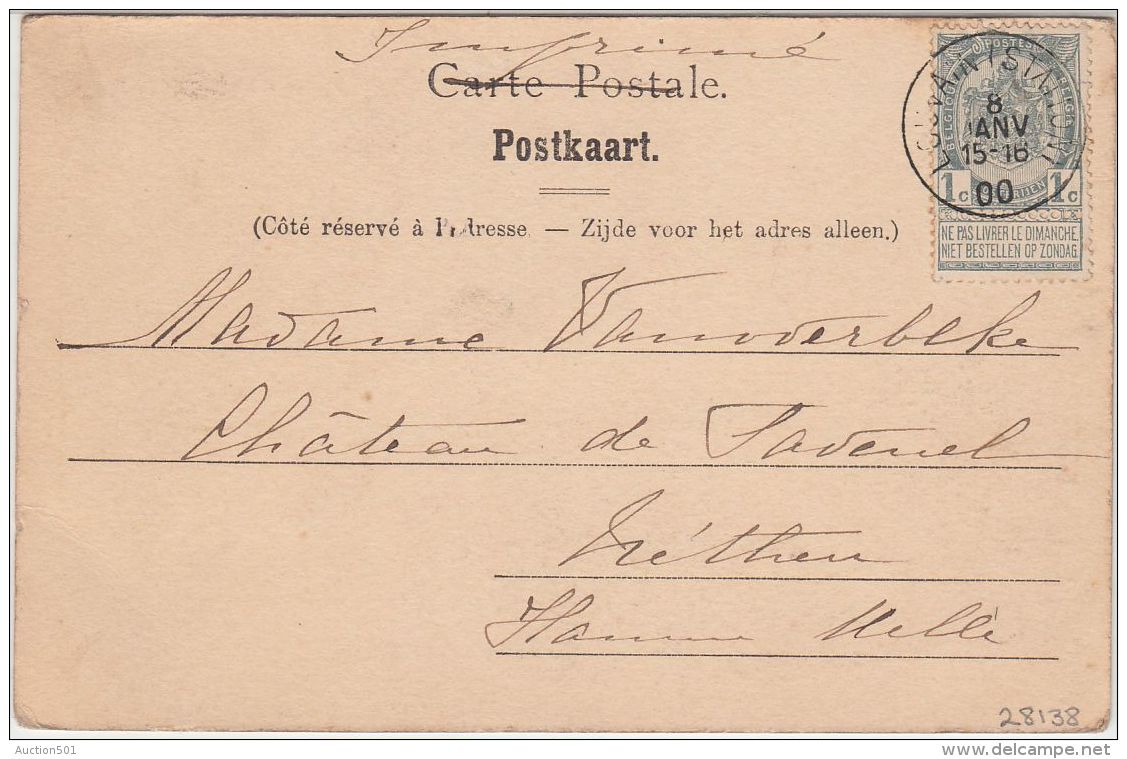 Imprimé
Carte Postale.
Postkaart.
(Côté réservé à l'adresse. — Zijde voor het adres alleen.)
POSTES
BELGIQUE BELGIE
LOUVAIN (STATION)
8
JANV
15-16
00
1c 1c
NE PAS LIVRER LE DIMANCHE.
NIET BESTELLEN OP ZONDAG.
Madame Vanderbeke
Château de Savenel
Néthen
Hamme Mille
28138
Auction501
www.delcampe.net